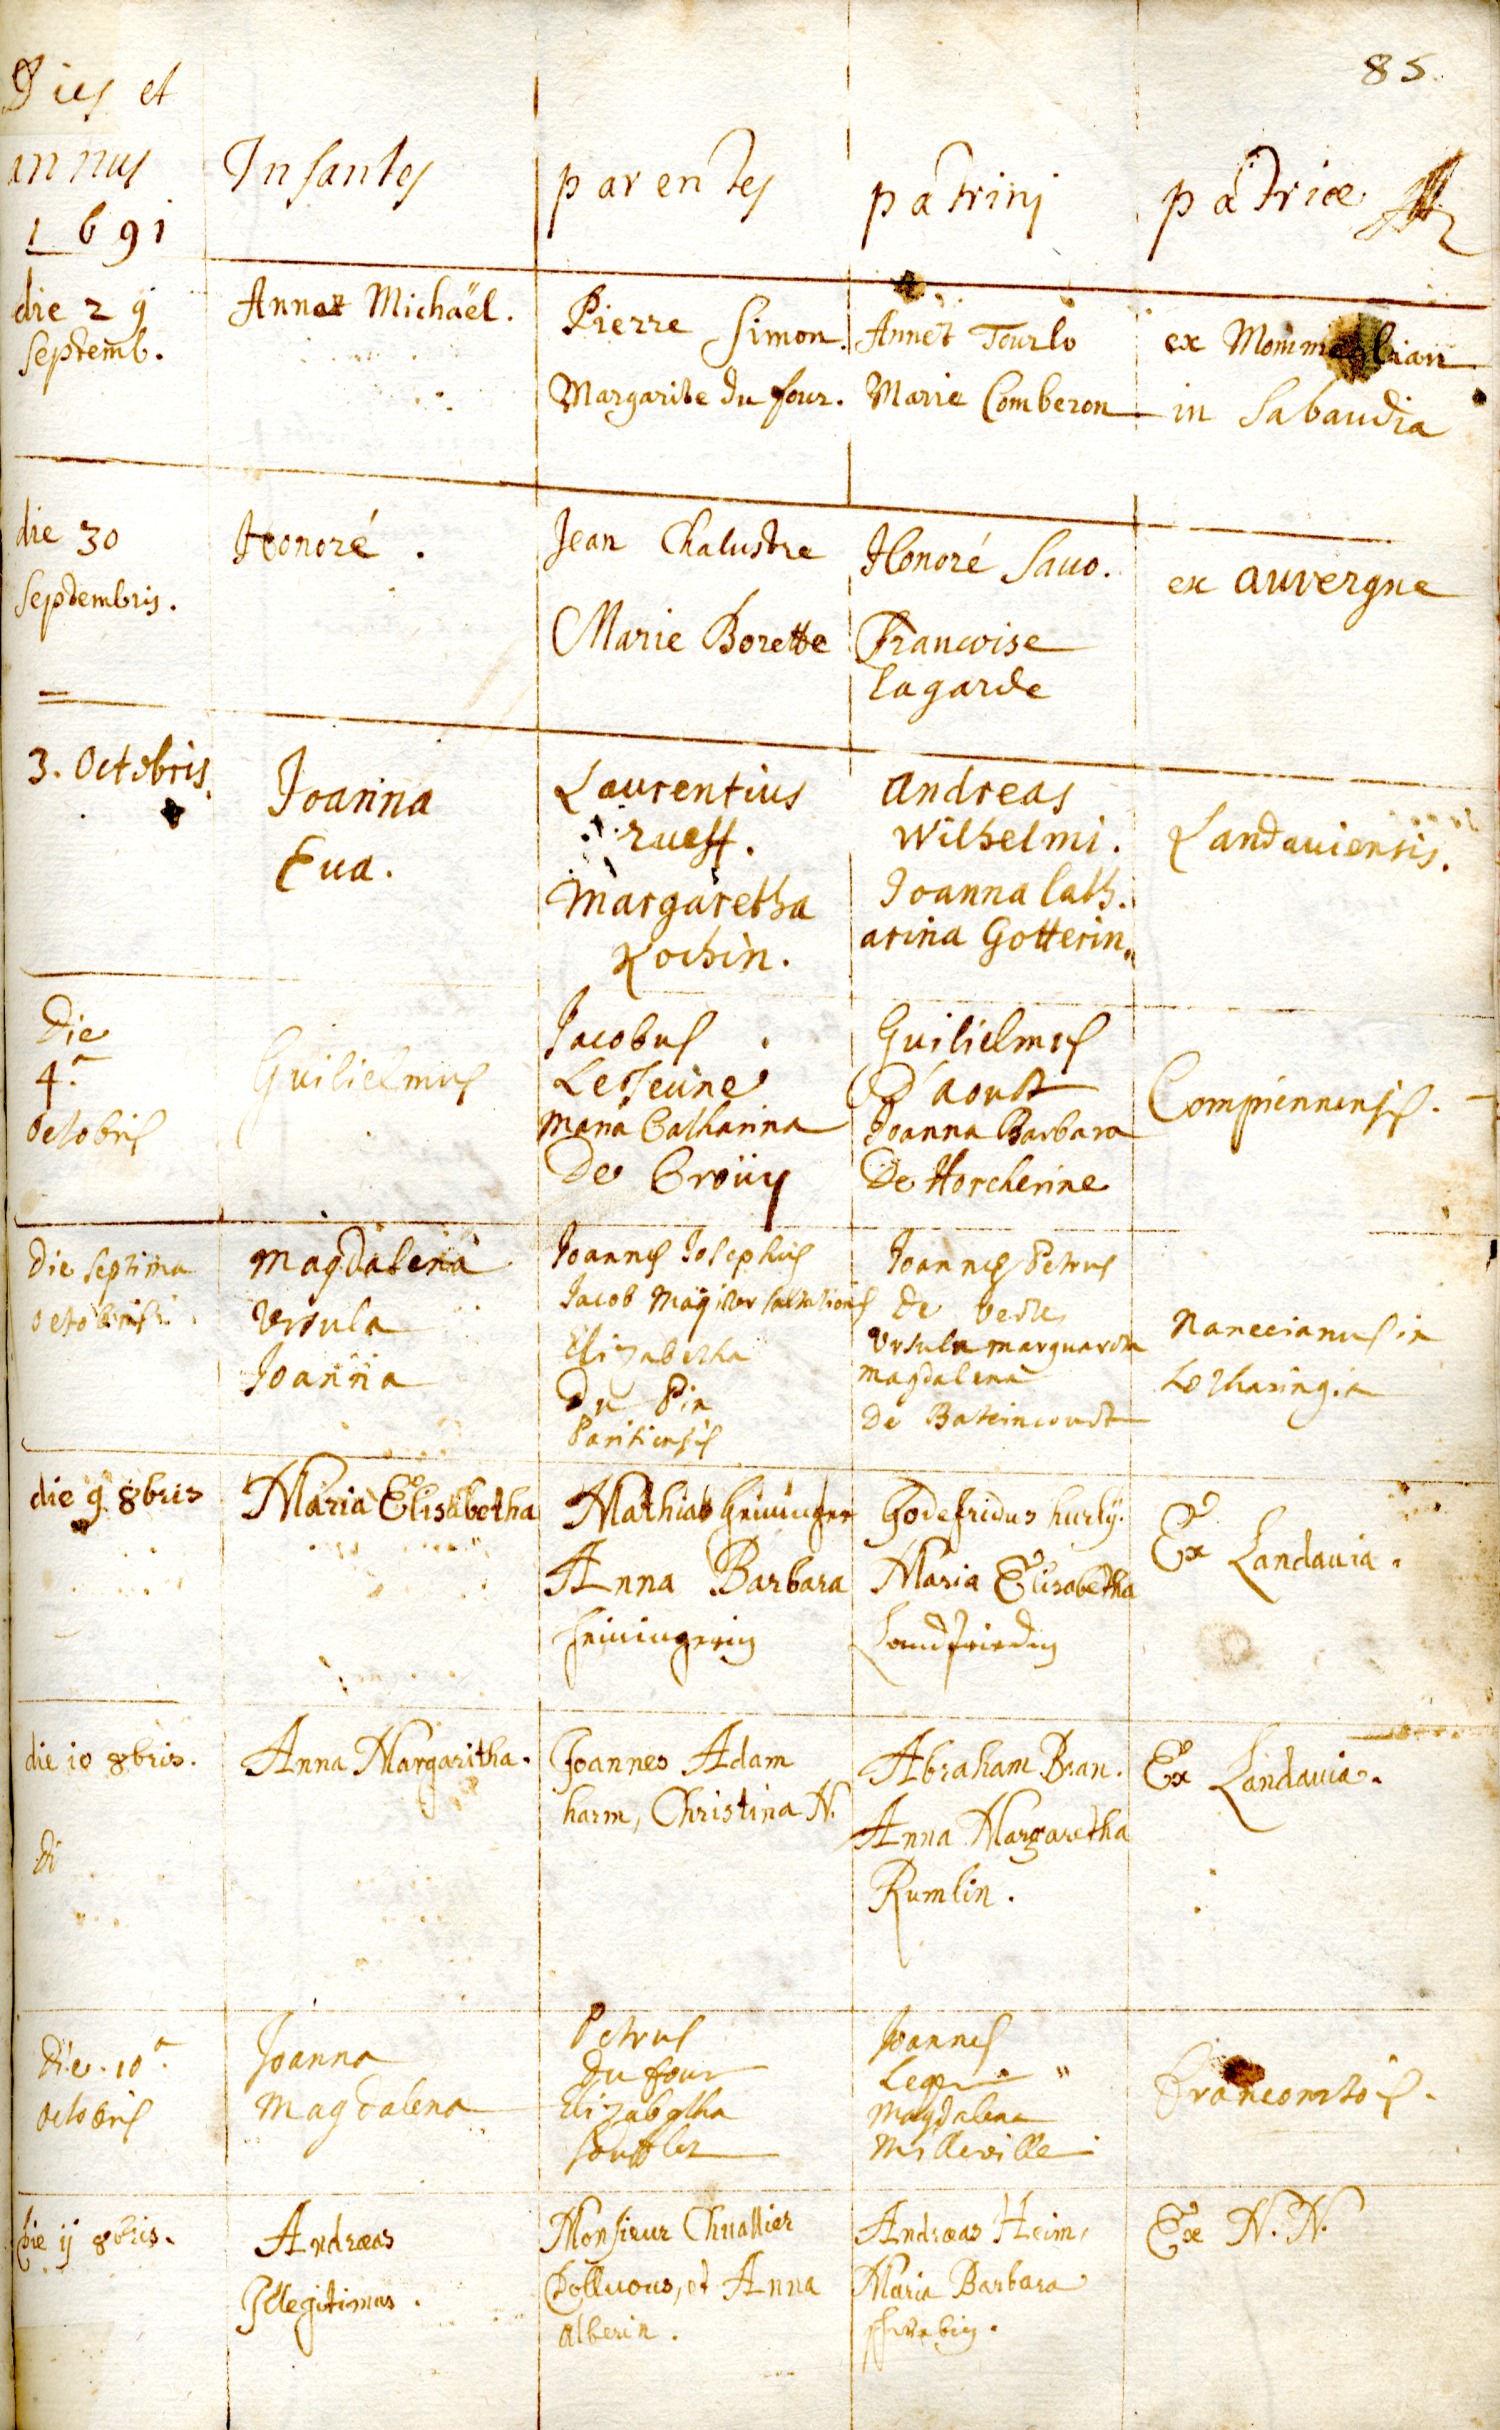 85.
Dies et
annus
1691
Infantes
parentes
patrini
patriæ
die 29
Septemb.
Annet Michaël.
Pierre Simon.
Margarite du four.
Annet Tourlo
Marie Comberon
ex Mommeslian
in Sabaudia
die 30
Septembris.
Honoré.
Jean Chalustre
Marie Borette
Honoré Sauo.
Francoise
lagarde
ex auvergne
3. Octobris.
Joanna
Eua.
Laurentius
rueff.
Margaretha
Kochin.
Andreas
Wilhelmi.
Joanna Cath.
arina Gotterin.
Landauiensis.
Die
4.a
octobris
Guilielmus
Jacobus
LeJeune
Maria Catharina
De Croüy
Guilielmus
D'aoust
Joanna Barbara
De Horcherine
Compiennensis.
Die septima
octobris
Magdalena
Ursula
Joanna
Joannes Josephus
Jacob Magister saltationis
Elizabetha
Du Pin
Joannes Petrus
de
Ursula marguarita
magdalena
De Bateincourt
Naneeianus in
Lotharingia
die 9 8bris
Maria Elisabetha
Mathias
Anna Barbara
Godefridus hurly.
Maria Elisabetha
Landfriedin
Ex Landauia.
die 10 8bris.
di
Anna Margaritha.
Joannes Adam
harm, Christina N.
Abraham Bran.
Anna Margaretha
Rumlin.
Ex Landauia.
Die. 10a.
octobris
Joanna
Magdalena
Petrus
Du four
Elizabetha
Soufflet
Joannes
Magdalena
Milleville
die 11 8bris.
Andreas
Illegitimus.
Monsieur Chuallier
Dolluous, et Anna
Alberin.
Andreas Heim,
Maria Barbara
schwabin.
Ex N. N.